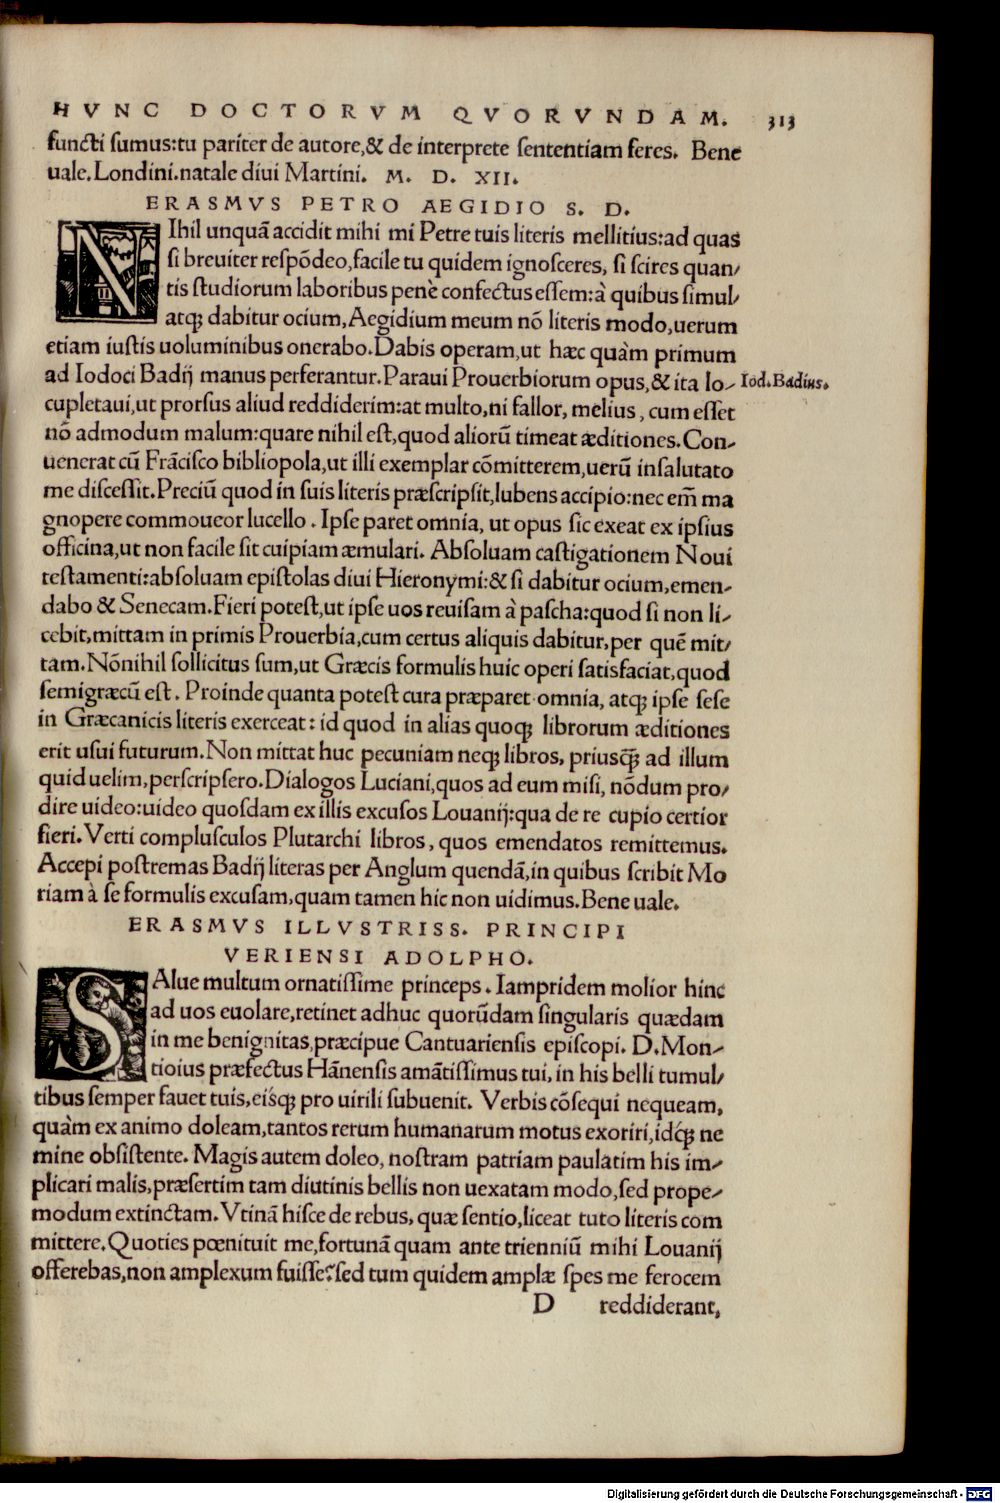 HVNC DOCTORVM QVORVNDAM. 313
functi sumus:tu pariter de autore,& de interprete sententiam feres. Bene
uale.Londini.natale diui Martini. M. D. XII.
ERASMVS PETRO AEGIDIO S. D.
NIhil unquã accidit mihi mi Petre tuis literis mellitius:ad quas
si breuiter respõdeo,facile tu quidem ignosceres, si scires quan/
tis studiorum laboribus penè confectus essem:à quibus simul/
atq; dabitur ocium,Aegidium meum nõ literis modo,uerum
etiam iustis uoluminibus onerabo.Dabis operam,ut hæc quàm primum
ad Iodoci Badij manus perferantur.Paraui Prouerbiorum opus,& ita lo/ Iod.Badius.
cupletaui,ut prorsus aliud reddiderim:at multo,ni fallor, melius, cum esset
nõ admodum malum:quare nihil est,quod aliorũ timeat æditiones.Con/
uenerat cũ Frãcisco bibliopola,ut illi exemplar cõmitterem,uerũ insalutato
me discessit.Preciũ quod in suis literis præscripsit,lubens accipio:nec em̃ ma
gnopere commoueor lucello. Ipse paret omnia, ut opus sic exeat ex ipsius
officina,ut non facile sit cuipiam æmulari. Absoluam castigationem Noui
testamenti:absoluam epistolas diui Hieronymi:& si dabitur ocium,emen/
dabo & Senecam.Fieri potest,ut ipse uos reuisam à pascha:quod si non li/
cebit,mittam in primis Prouerbia,cum certus aliquis dabitur,per quẽ mit/
tam.Nõnihil sollicitus sum,ut Græcis formulis huic operi satisfaciat,quod
semigræcũ est. Proinde quanta potest cura præparet omnia, atq; ipse sese
in Græcanicis literis exerceat: id quod in alias quoq; librorum æditiones
erit usui futurum.Non mittat huc pecuniam neq; libros, priusq̃ ad illum
quid uelim,perscripsero.Dialogos Luciani,quos ad eum misi, nõdum pro/
dire uideo:uideo quosdam ex illis excusos Louanij:qua de re cupio certior
fieri.Verti complusculos Plutarchi libros, quos emendatos remittemus.
Accepi postremas Badij literas per Anglum quendã,in quibus scribit Mo
riam à se formulis excusam,quam tamen hic non uidimus.Bene uale.
ERASMVS ILLVSTRISS. PRINCIPI
VERIENSI ADOLPHO.
SAlue multum ornatissime princeps. Iampridem molior hinc
ad uos euolare,retinet adhuc quorũdam singularis quædam
in me benignitas,præcipue Cantuariensis episcopi. D.Mon/
tioius præfectus Hãnensis amãtissimus tui, in his belli tumul/
tibus semper fauet tuis,eisq́; pro uirili subuenit. Verbis cõsequi nequeam,
quàm ex animo doleam,tantos rerum humanarum motus exoriri,idq́; ne
mine obsistente. Magis autem doleo, nostram patriam paulatim his im/
plicari malis,præsertim tam diutinis bellis non uexatam modo,sed prope/
modum extinctam.Vtinã hisce de rebus, quæ sentio,liceat tuto literis com
mittere.Quoties pœnituit me,fortunã quam ante trienniũ mihi Louanij
offerebas,non amplexum fuisse?sed tum quidem amplæ spes me ferocem
D reddiderant,
Digitalisierung gefördert durch die Deutsche Forschungsgemeinschaft - DFG